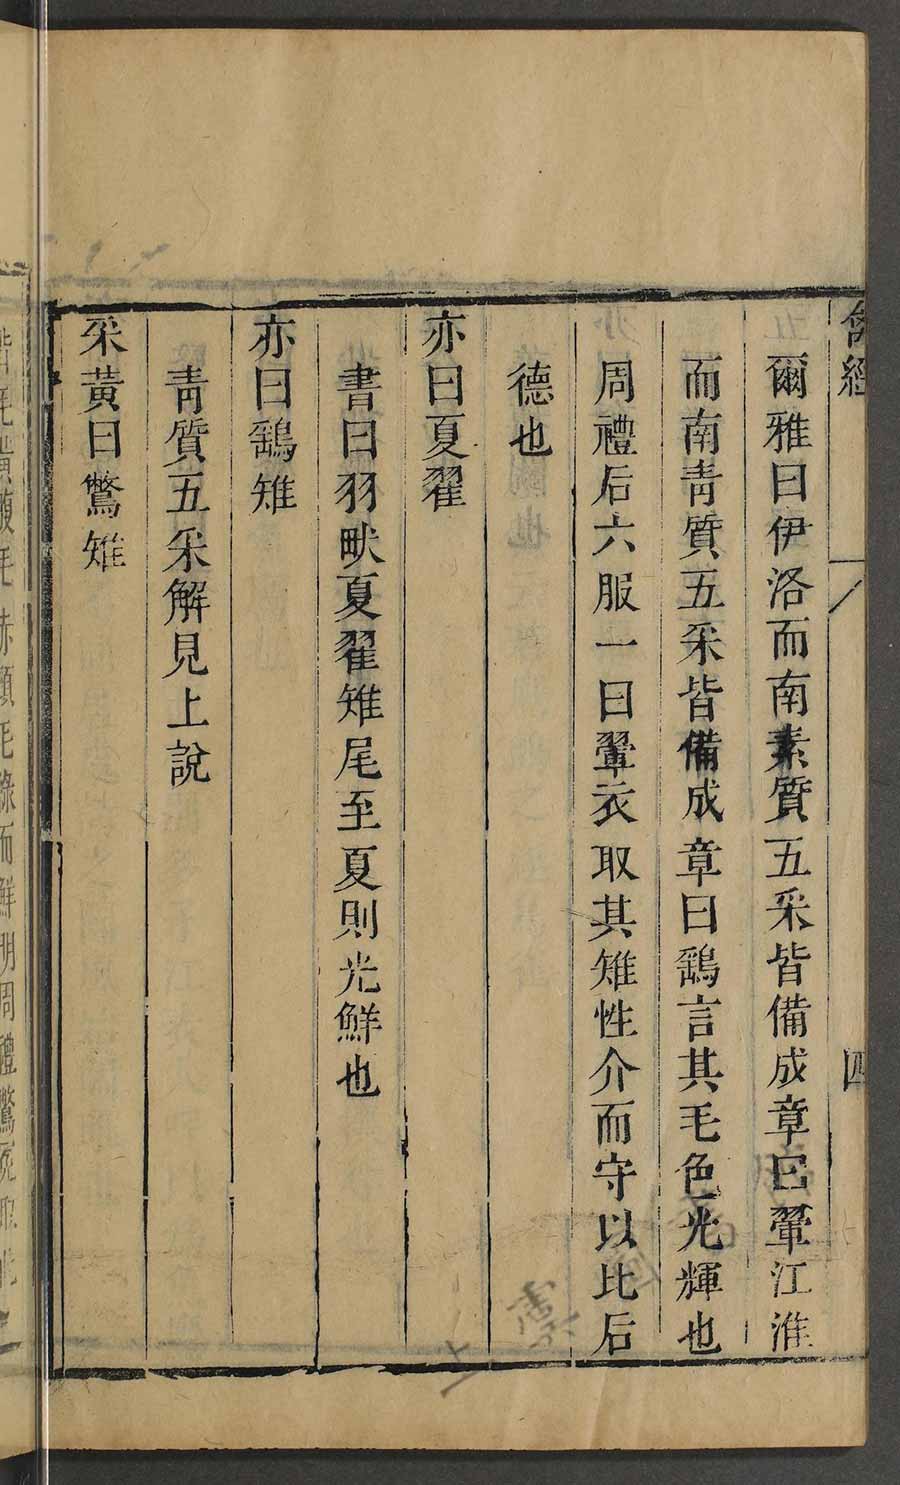 禽經
四
爾雅曰伊洛而南素質五采皆備成章曰翬江淮
而南靑質五采皆備成章曰鷂言其毛色光輝也
周禮后六服一曰翬衣取其雉性介而守以比后
德也
亦曰夏翟
書曰羽畎夏翟雉尾至夏則光鮮也
亦曰鷂雉
靑質五采解見上說
采黃曰鷩雉
毛黃
毛赤項毛綠而鮮明周禮鷩冕取此